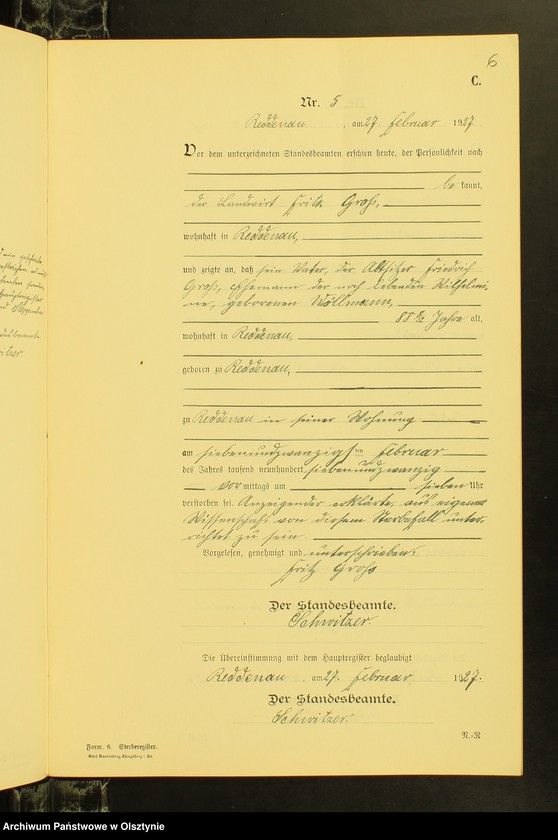 6
C.
Nr. 5
Reddenau, am 27 Februar 1927
Vor dem unterzeichneten Standesbeamten erschien heute, der Persönlichkeit nach
bekannt,
der Landwirt Fritz Groß,
wohnhaft in Reddenau,
und zeigte an, daß sein Vater, der Altsitzer Friedrich
Groß, Ehemann der noch lebenden Wilhelmi-
ne, geborenen Wollmann,
88 Jahre alt,
wohnhaft in Reddenau,
geboren zu Reddenau,
zu Reddenau in seiner Wohnung
am siebenundzwanzigsten Februar
des Jahres tausend neunhundert siebenundzwanzig
vormittags um sieben Uhr
verstorben sei. Anzeigender erklärte, aus eigener
Wissenschaft von diesem Sterbefall unter-
richtet zu sein
Vorgelesen, genehmigt und unterschrieben.
Fritz Groß
Der Standesbeamte.
Schwitzer.
Die Übereinstimmung mit dem Hauptregister beglaubigt
Reddenau, am 27. Februar 1927.
Der Standesbeamte.
Schwitzer.
Form. 6. Sterberegister.
R.-R
Archiwum Państwowe w Olsztynie